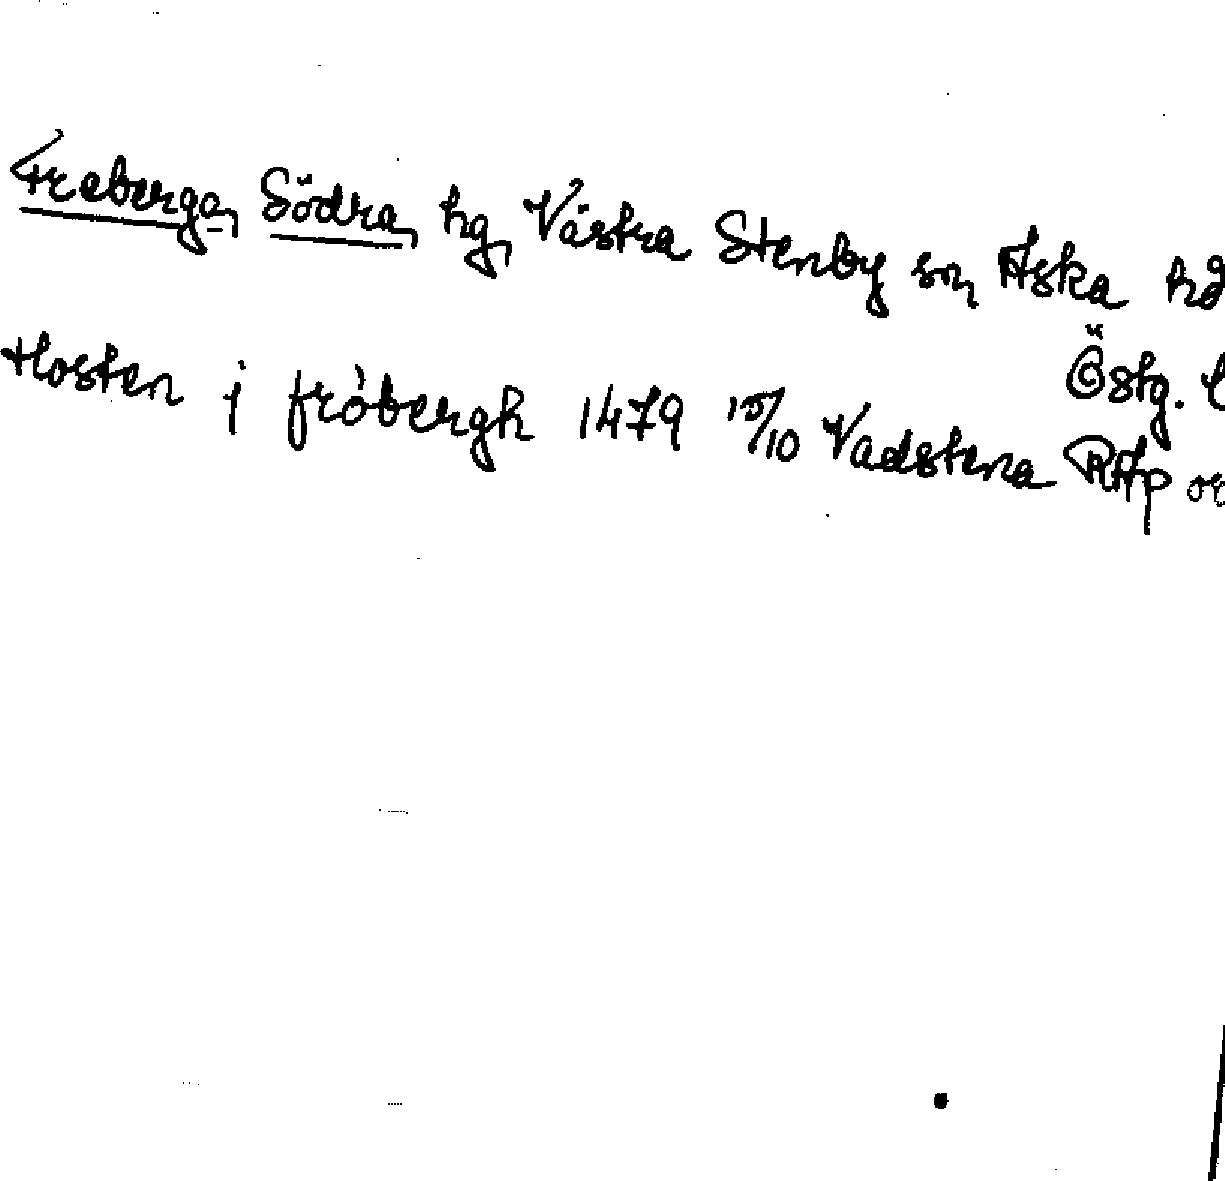 Freberga, Södra, hg, Västra Stenby sn, Aska hd
Östg. l
Hosten j fròbergh 1479 15/10 Vadstena RAp or